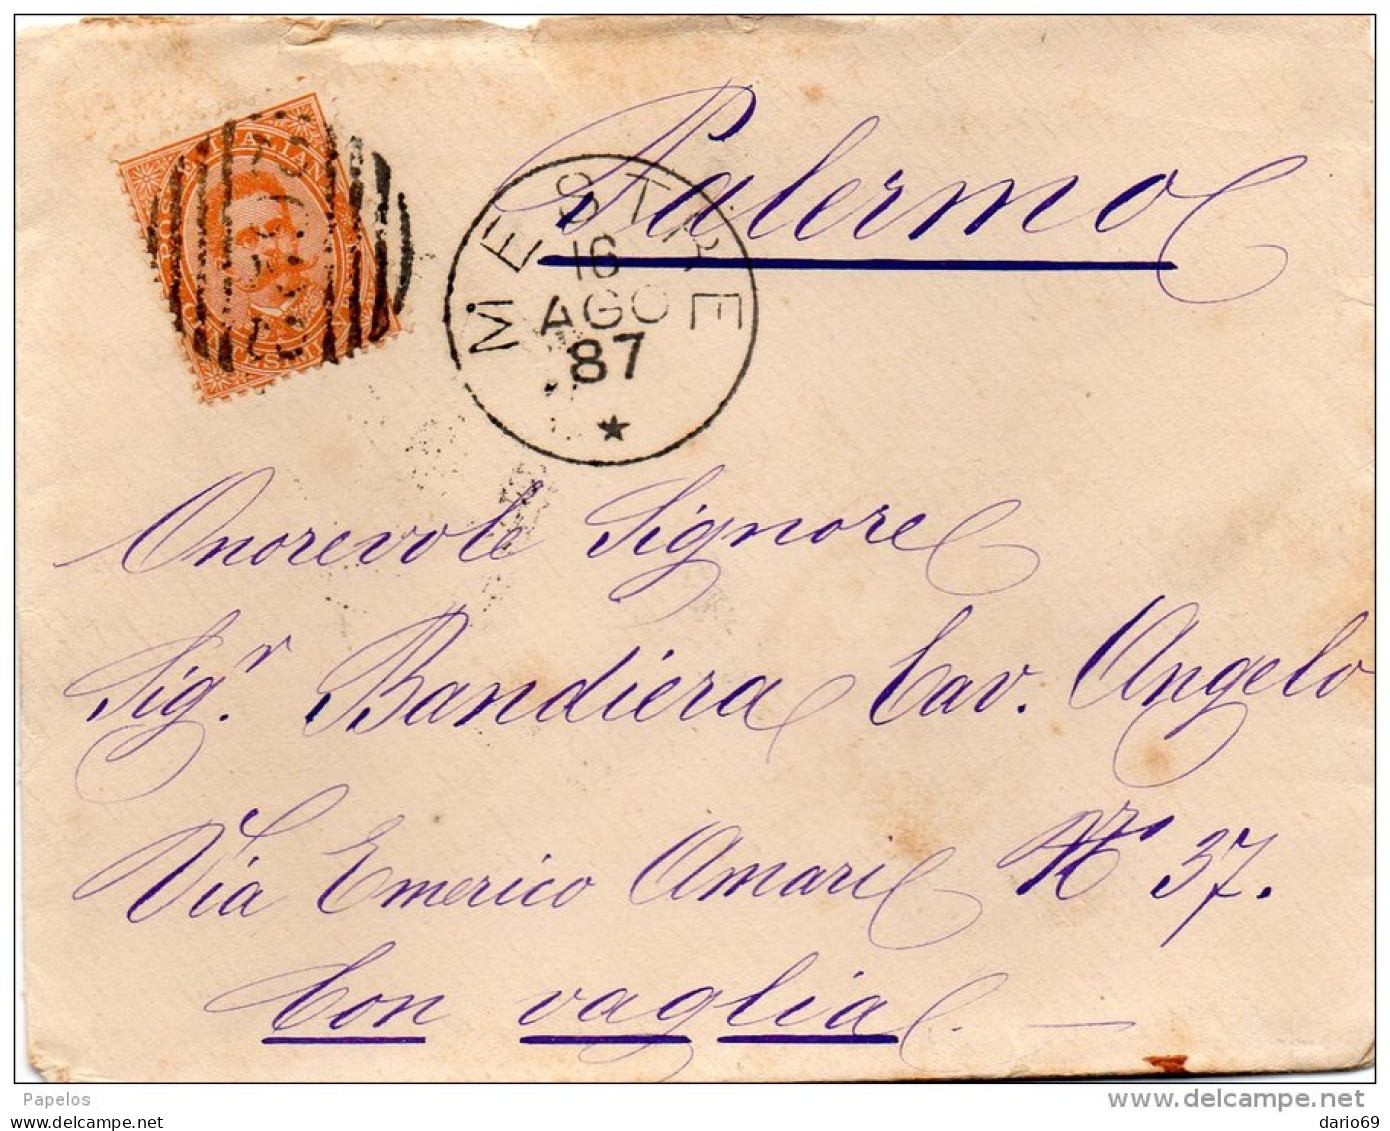 Palermo
MESTRE
16
AGO
87
Onorevole Signore
Sig.r Bandiera Cav. Angelo
Via Emerico Amari Nr. 37.
Con vaglia.
Papelos
www.delcampe.net
dario69